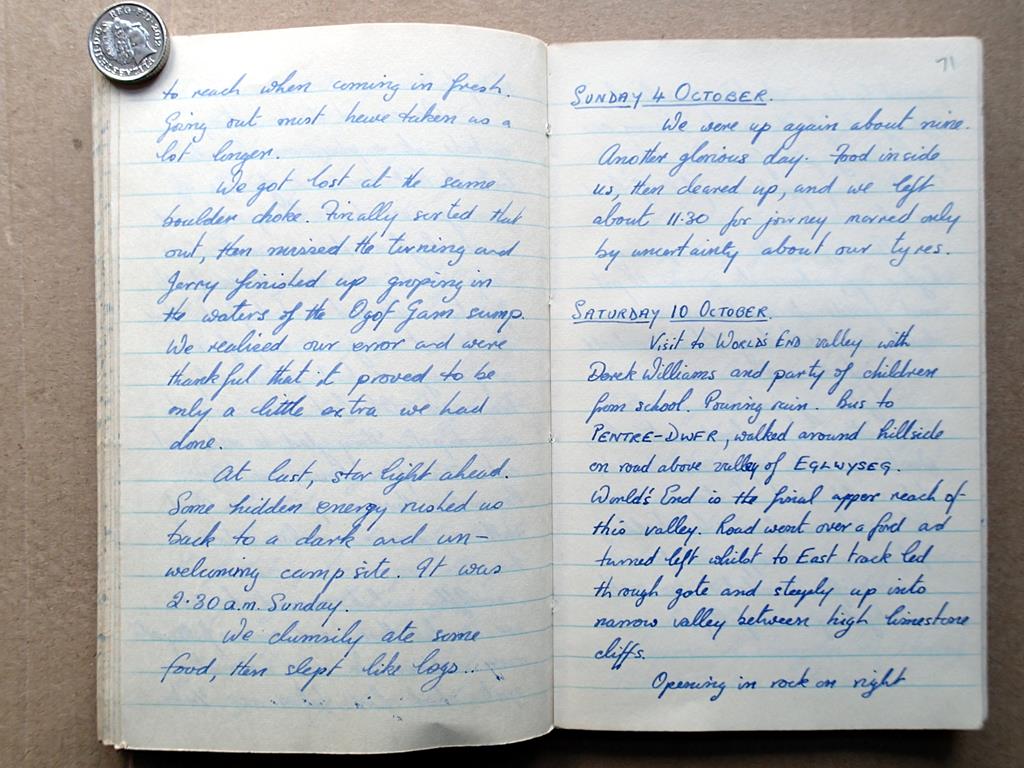 to reach when coming in fresh.
Going out must have taken us a
lot longer.
We got lost at the same
boulder choke. Finally sorted that
out, then missed the turning and
Jerry finished up groping in
the waters of the Ogof Gam sump.
We realised our error and were
thankful that it proved to be
only a little extra we had
done.
At last, star light ahead.
Some hidden energy rushed us
back to a dark and un-
welcoming camp site. It was
2.30 a.m. Sunday.
We clumsily ate some
food, then slept like logs...
71
SUNDAY 4 OCTOBER.
We were up again about nine.
Another glorious day. Food inside
us, then cleared up, and we left
about 11.30 for journey marred only
by uncertainty about our tyres.
SATURDAY 10 OCTOBER.
Visit to WORLD'S END valley with
Derek Williams and party of children
from school. Pouring rain. Bus to
PENTRE-DWFR, walked around hillside
on road above valley of EGLWYSEG.
World's End is the final upper reach of
this valley. Road went over a ford and
turned left whilst to East track led
through gate and steeply up into
narrow valley between high limestone
cliffs.
Opening in rock on right
ELIZABETH II D G REG F D 2012